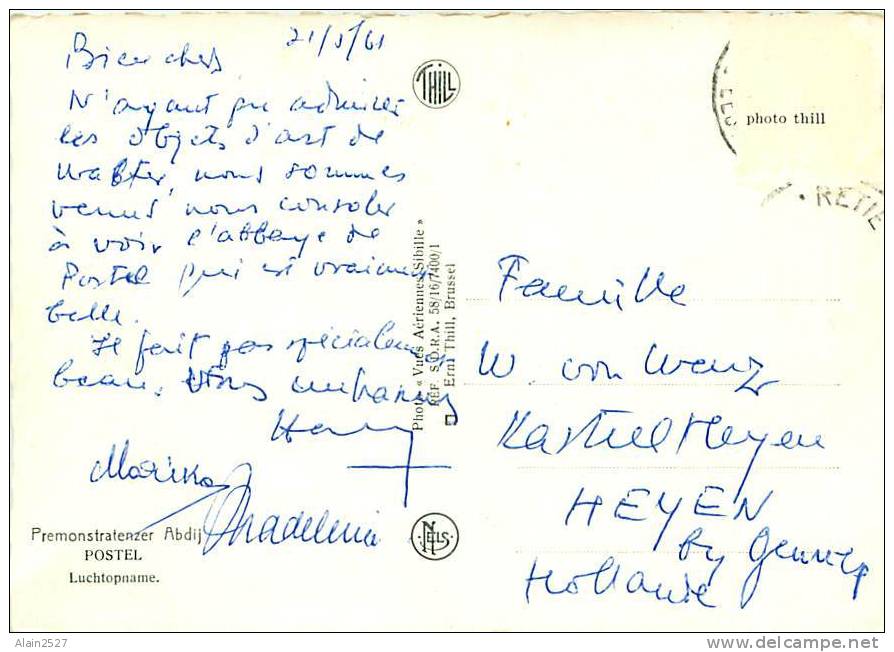 21/5/61
Bien chers
N'ayant pu admirer
les objets d'art de
Walter, nous sommes
venus nous consoler
à voir l'abbaye de
Postel qui est vraiment
belle.
Il fait pas spécialement
beau. Vous embrassons
Harry
Marika
Madeleine
Premonstratenzer Abdij
POSTEL
Luchtopname.
THILL
Photo « Vues Aériennes Sibille »
REF. S.D.R.A. 58/16/7400/1
Ern. Thill, Brussel
NELS
photo thill
RETIE
Famille
W. von Wenz
Kasteel Heyen
HEYEN
by Gennep
Hollande
Alain2527
www.delcampe.net